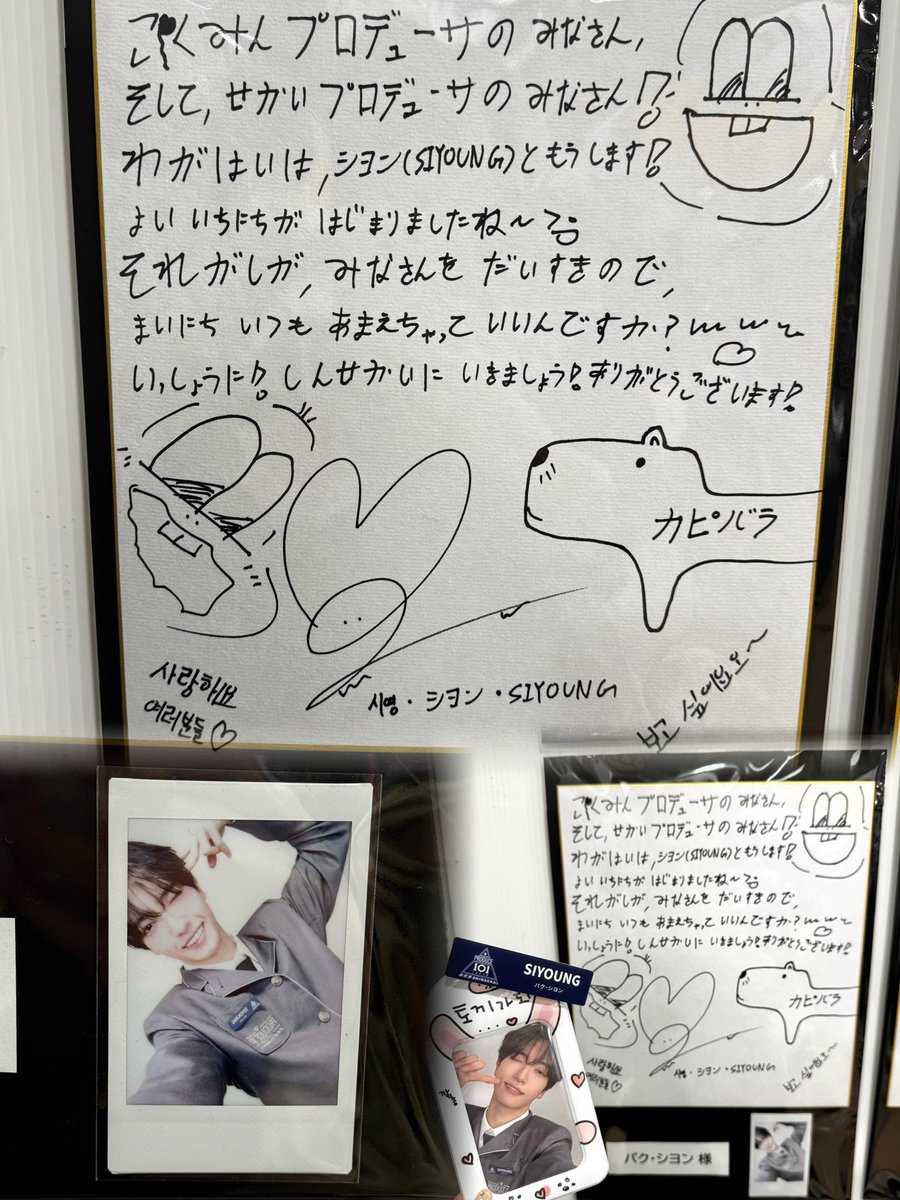 こくみん プロデューサの みなさん,
そして, せかい プロデューサの みなさん!
わがはいは, シヨン(SIYOUNG)と もうします!
よい いちにちが はじまりましたね~
それがしが, みなさんを だいすきので,
まいにち いつも あまえちゃって いいんですか?
いっしょうに! しんせかいに いきましょう! ありがとうございます!
カピバラ
사랑해요
여러분들♡
시영・シヨン・SIYOUNG
보고 싶어요오~
SIYOUNG
PRODUCE
101
SIYOUNG
パク・シヨン
토끼가
SIYOUNG
こくみん プロデューサの みなさん,
そして, せかい プロデューサの みなさん!
わがはいは, シヨン(SIYOUNG)と もうします!
よい いちにちが はじまりましたね~
それがしが, みなさんを だいすきので,
まいにち いつも あまえちゃって いいんですか?
いっしょうに! しんせかいに いきましょう! ありがとうございます!
カピバラ
사랑해요
여러분들♡
시영・シヨン・SIYOUNG
보고 싶어요오~
パク・シヨン 様